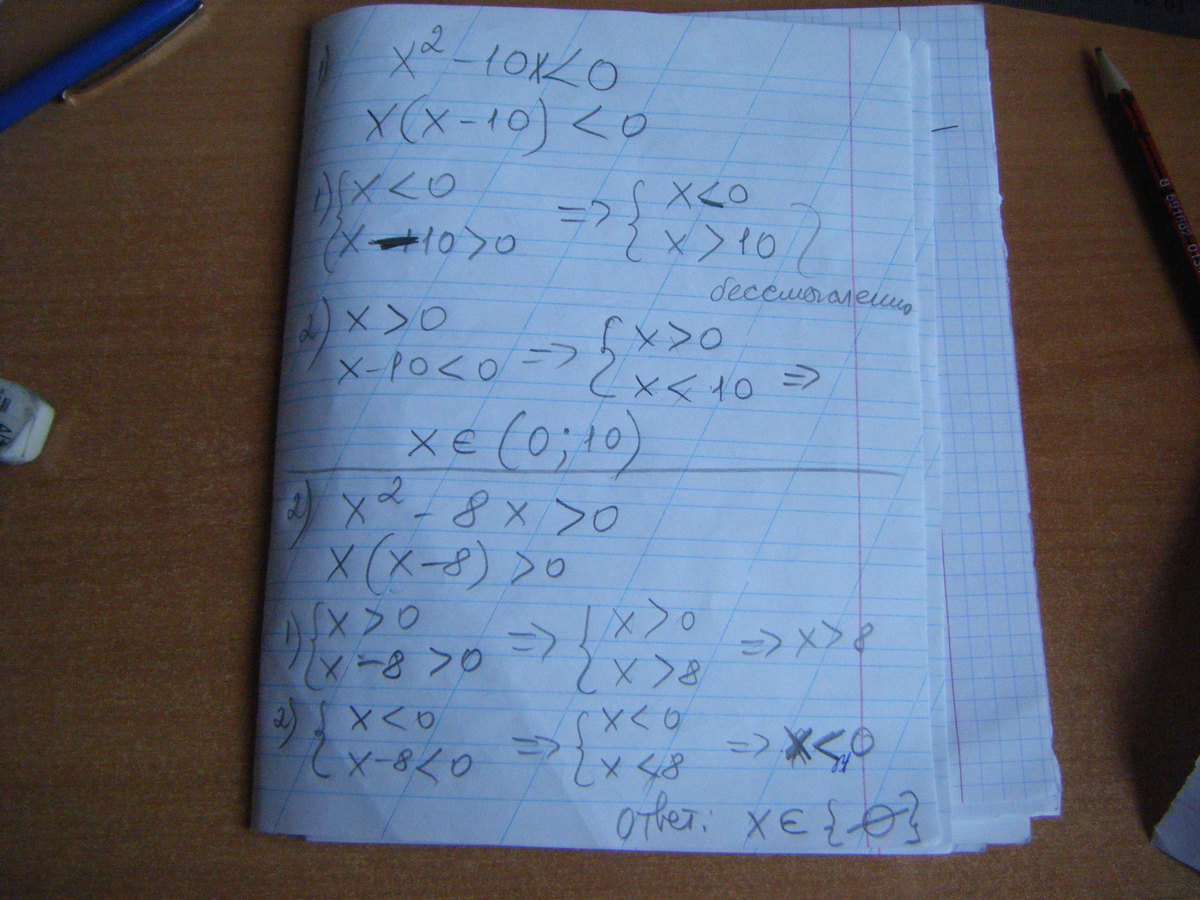 1) x² - 10x < 0
x(x - 10) < 0
1) { x < 0 => { x < 0
x - 10 > 0 x > 10 }
бессмысленно
2) x > 0 => { x > 0
x - 10 < 0 x < 10 =>
x ∈ (0; 10)
2) x² - 8x > 0
x(x - 8) > 0
1) { x > 0 => { x > 0 => x > 8
x - 8 > 0 x > 8
2) { x < 0 => { x < 0 => x < 0
x - 8 < 0 x < 8
Ответ: x ∈ {∅}